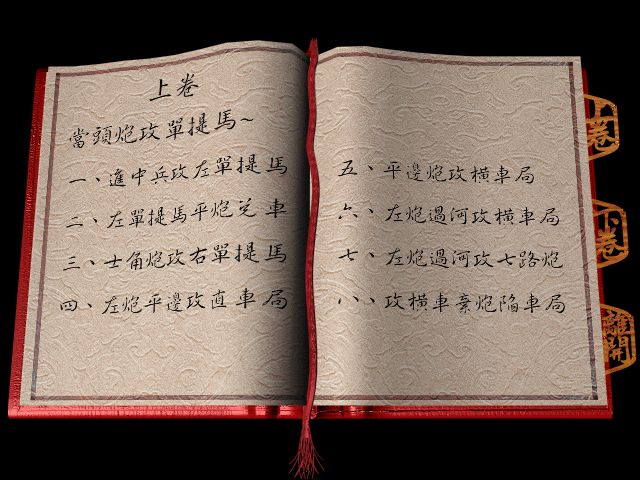 上卷
當頭炮攻單提馬~
一、進中兵攻左單提馬
二、左單提馬平炮兌車
三、士角炮攻右單提馬
四、左炮平邊攻直車局
五、平邊炮攻橫車局
六、左炮過河攻橫車局
七、左炮過河攻七路炮
八、攻橫車棄炮陷車局
上卷
下卷
離開